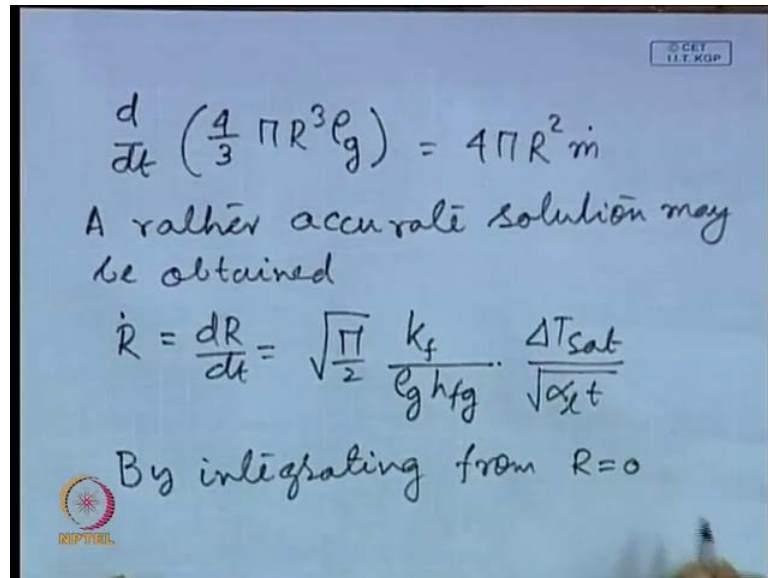 © CET
I.I.T. KGP
d/dt (4/3 πR³ρg) = 4πR² ṁ
A rather accurate solution may
be obtained
Ṙ = dR/dt = √(π/2) k_f/(ρg h_fg) · ΔT_sat/√(α_l t)
By integrating from R=0
NPTEL